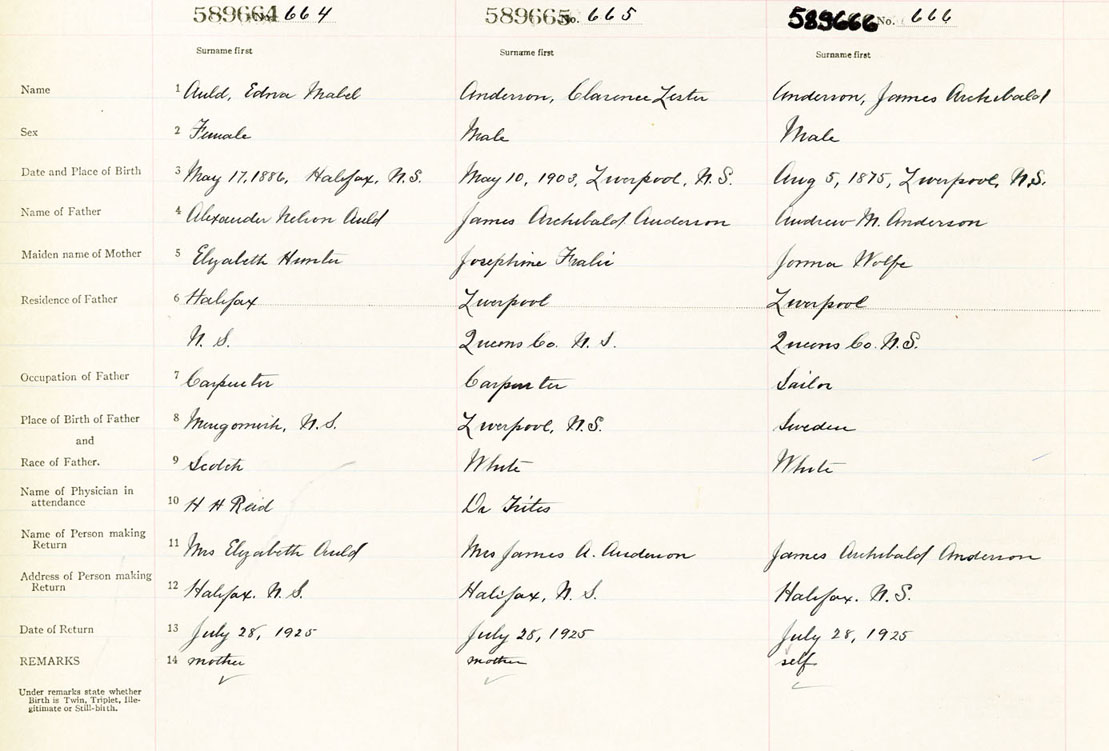 589664 No. 664 589665 No. 665 589666 No. 666
Surname first Surname first Surname first
Name 1 Auld, Edna Mabel Anderson, Clarence Lester Anderson, James Archibald
Sex 2 Female Male Male
Date and Place of Birth 3 May 17, 1886, Halifax, N.S. May 10, 1903, Liverpool, N.S. Aug 5, 1875, Liverpool, N.S.
Name of Father 4 Alexander Nelson Auld James Archibald Anderson Andrew M. Anderson
Maiden name of Mother 5 Elizabeth Hunter Josephine Fralic Wolfe
Residence of Father 6 Halifax Liverpool Liverpool
N. S. Queens Co. N. S. Queens Co. N.S.
Occupation of Father 7 Carpenter Carpenter Sailor
Place of Birth of Father 8 Merigomish, N.S. Liverpool, N.S. Sweden
and
Race of Father. 9 Scotch White White
Name of Physician in
attendance 10 H H Reid Dr
Name of Person making
Return 11 Mrs Elizabeth Auld Mrs James A. Anderson James Archibald Anderson
Address of Person making
Return 12 Halifax. N. S. Halifax, N. S. Halifax. N.S.
Date of Return 13 July 28, 1925 July 28, 1925 July 28, 1925
REMARKS 14 mother mother self
Under remarks state whether
Birth is Twin, Triplet, Ille-
gitimate or Still-birth.